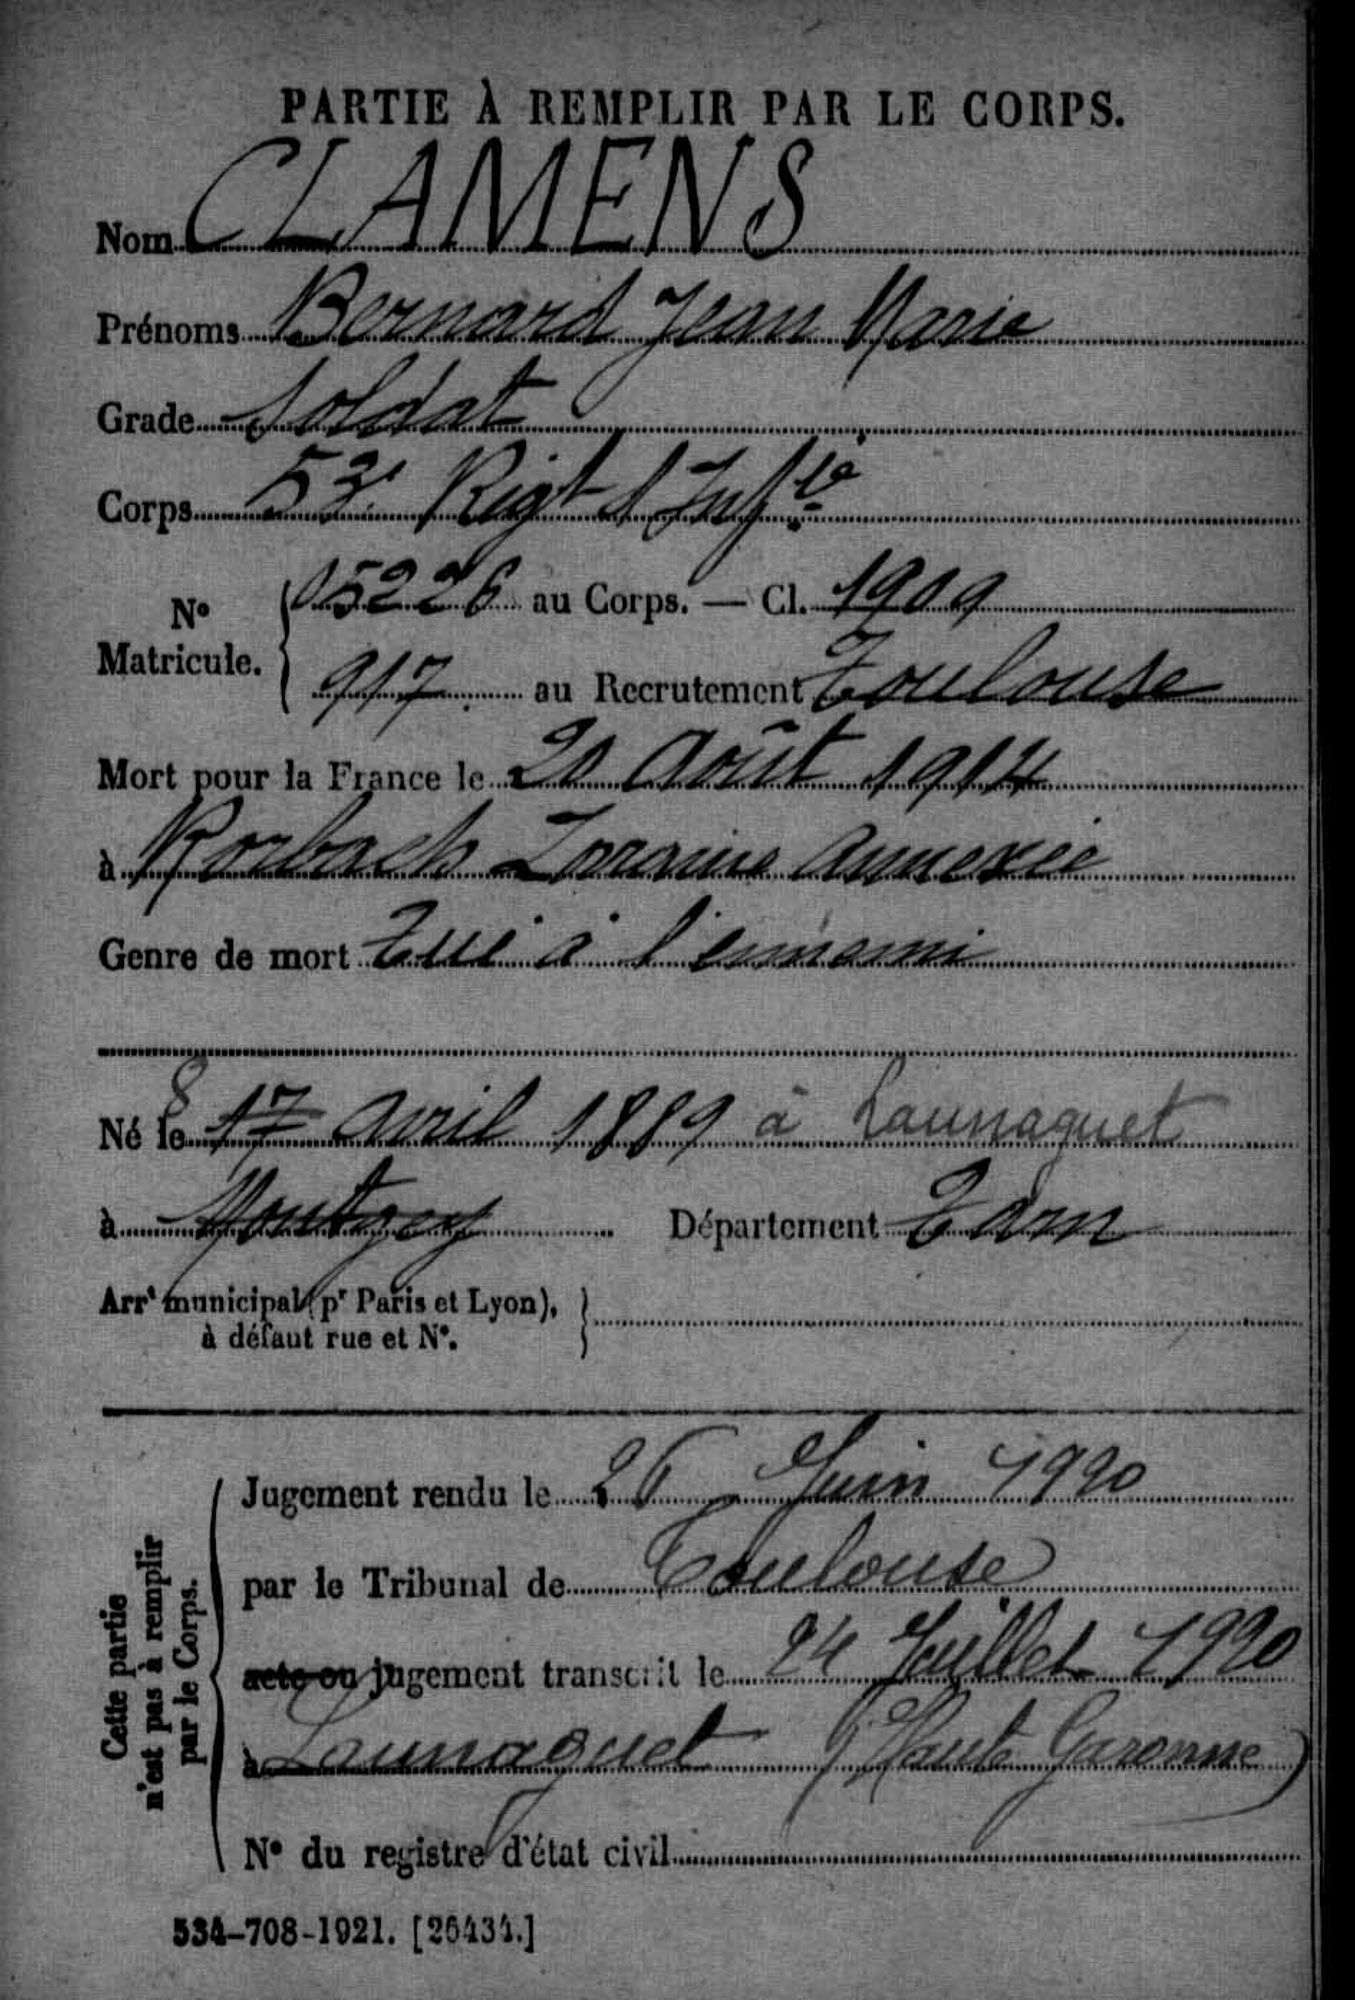 PARTIE À REMPLIR PAR LE CORPS.
Nom CLAMENS
Prénoms Bernard Jean Marie
Grade Soldat
Corps 53e Régt d'Inf.ie
No Matricule. 05226 au Corps. — Cl. 1909
917 au Recrutement Toulouse
Mort pour la France le 20 Août 1914
à Rorbach Lorraine Annexée
Genre de mort Tué à l'ennemi
8
Né le 17 Avril 1889 à Launaguet
à Montgey Département Tarn
Arrt municipal (pr Paris et Lyon),
à défaut rue et No.
Cette partie
n'est pas à remplir
par le Corps.
Jugement rendu le 26 Juin 1920
par le Tribunal de Toulouse
acte ou jugement transcrit le 24 Juillet 1920
à Launaguet (Haute Garonne)
No du registre d'état civil
534-708-1921. [26434.]